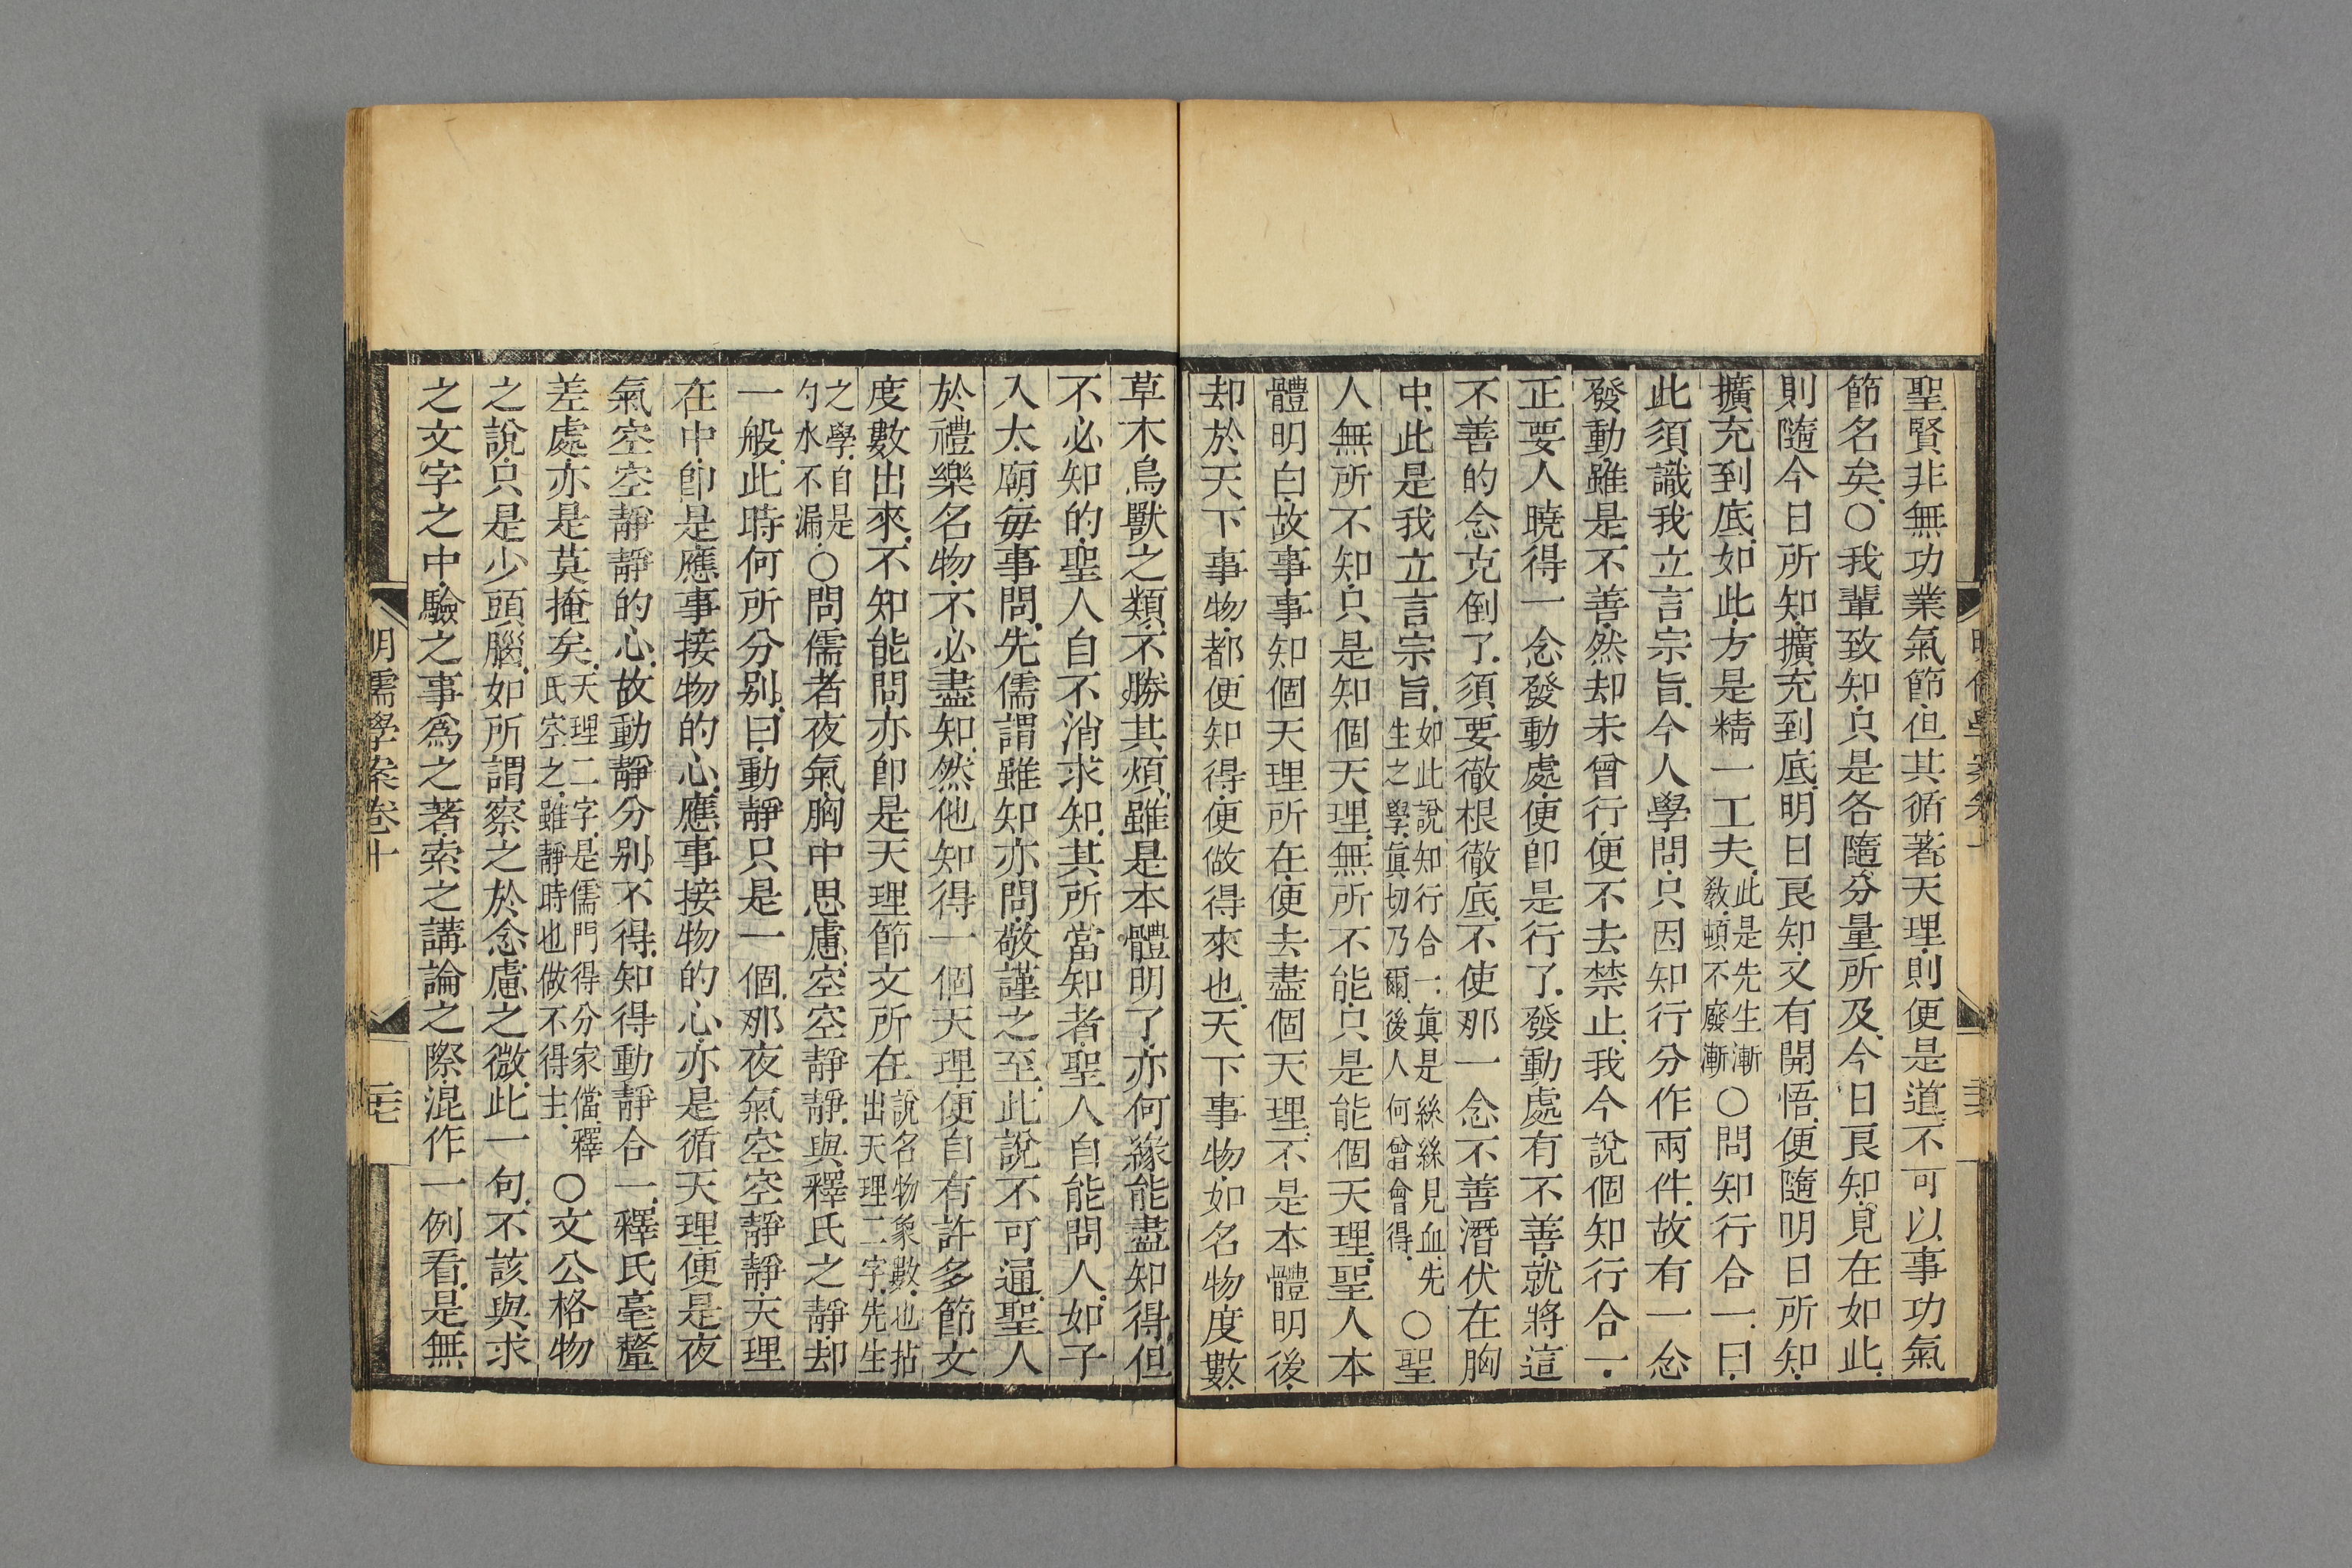 聖賢非無功業氣節但其循著天理則便是道不可以事功氣
節名矣○我輩致知只是各隨分量所及今日良知見在如此
則隨今日所知擴充到底明日良知又有開悟便隨明日所知
擴充到底如此方是精一工夫此是先生漸教頓不廢漸○問知行合一曰
此須識我立言宗旨今人學問只因知行分作兩件故有一念
發動雖是不善然却未曾行便不去禁止我今說個知行合一
正要人曉得一念發動處便卽是行了發動處有不善就將這
不善的念克倒了須要徹根徹底不使那一念不善潛伏在胸
中此是我立言宗旨如此說知行合一眞是絲絲見血先生之學眞切乃爾後人何曾會得○聖
人無所不知只是知個天理無所不能只是能個天理聖人本
體明白故事事知個天理所在便去盡個天理不是本體明後
却於天下事物都便知得便做得來也天下事物如名物度數
草木鳥獸之類不勝其煩雖是本體明了亦何緣能盡知得但
不必知的聖人自不消求知其所當知者聖人自能問人如子
入太廟每事問先儒謂雖知亦問敬謹之至此說不可通聖人
於禮樂名物不必盡知然他知得一個天理便自有許多節文
度數出來不知能問亦卽是天理節文所在說名物象數也拈出天理二字先生
之學自是勺水不漏○問儒者夜氣胸中思慮空空靜靜與釋氏之靜却
一般此時何所分別曰動靜只是一個那夜氣空空靜靜天理
在中卽是應事接物的心應事接物的心亦是循天理便是夜
氣空空靜靜的心故動靜分別不得知得動靜合一釋氏毫釐
差處亦是莫掩矣天理二字是儒門得分家儅釋氏空之雖靜時也做不得主○文公格物
之說只是少頭腦如所謂察之於念慮之微此一句不該與求
之文字之中驗之事爲之著索之講論之際混作一例看是無
明儒學案卷十